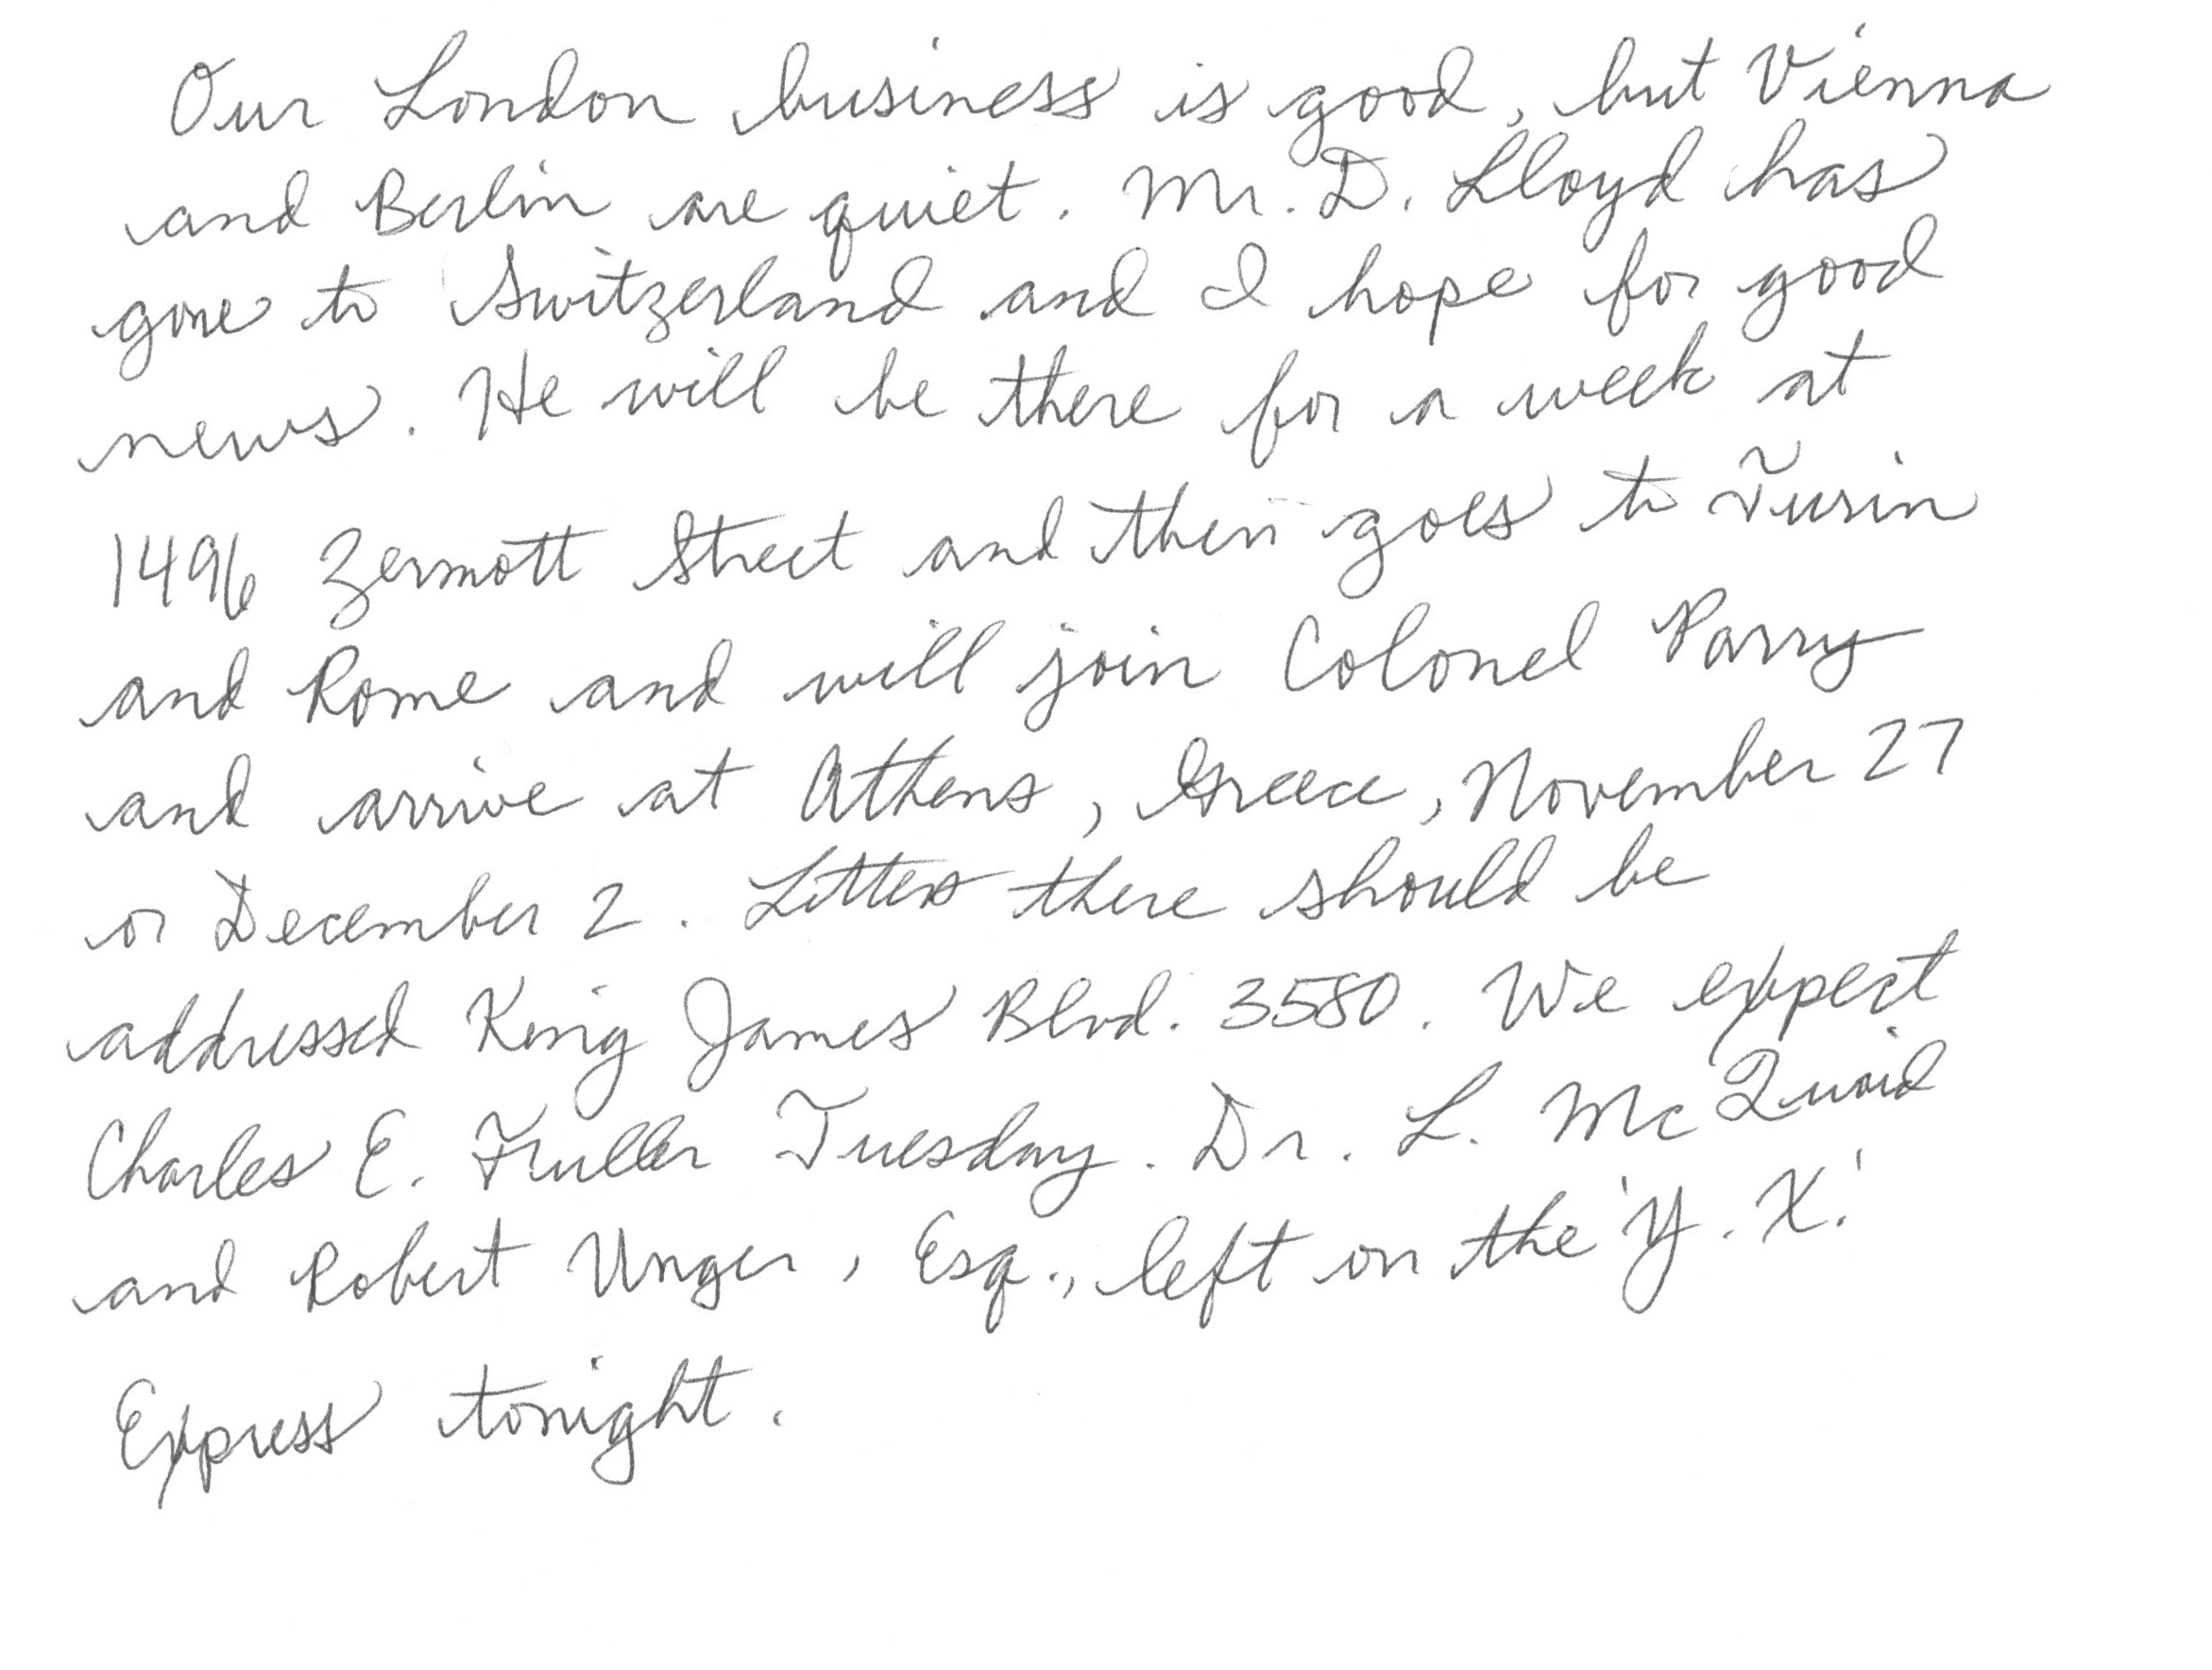 Our London business is good, but Vienna
and Berlin are quiet. Mr. D. Lloyd has
gone to Switzerland and I hope for good
news. He will be there for a week at
1496 Zermott Street and then goes to Turin
and Rome and will join Colonel Parry
and arrive at Athens, Greece, November 27
or December 2. Letters there should be
addressed King James Blvd. 3580. We expect
Charles E. Fuller Tuesday. Dr. L. McQuaid
and Robert Unger, Esq., left on the 'Y.X.'
Express tonight.